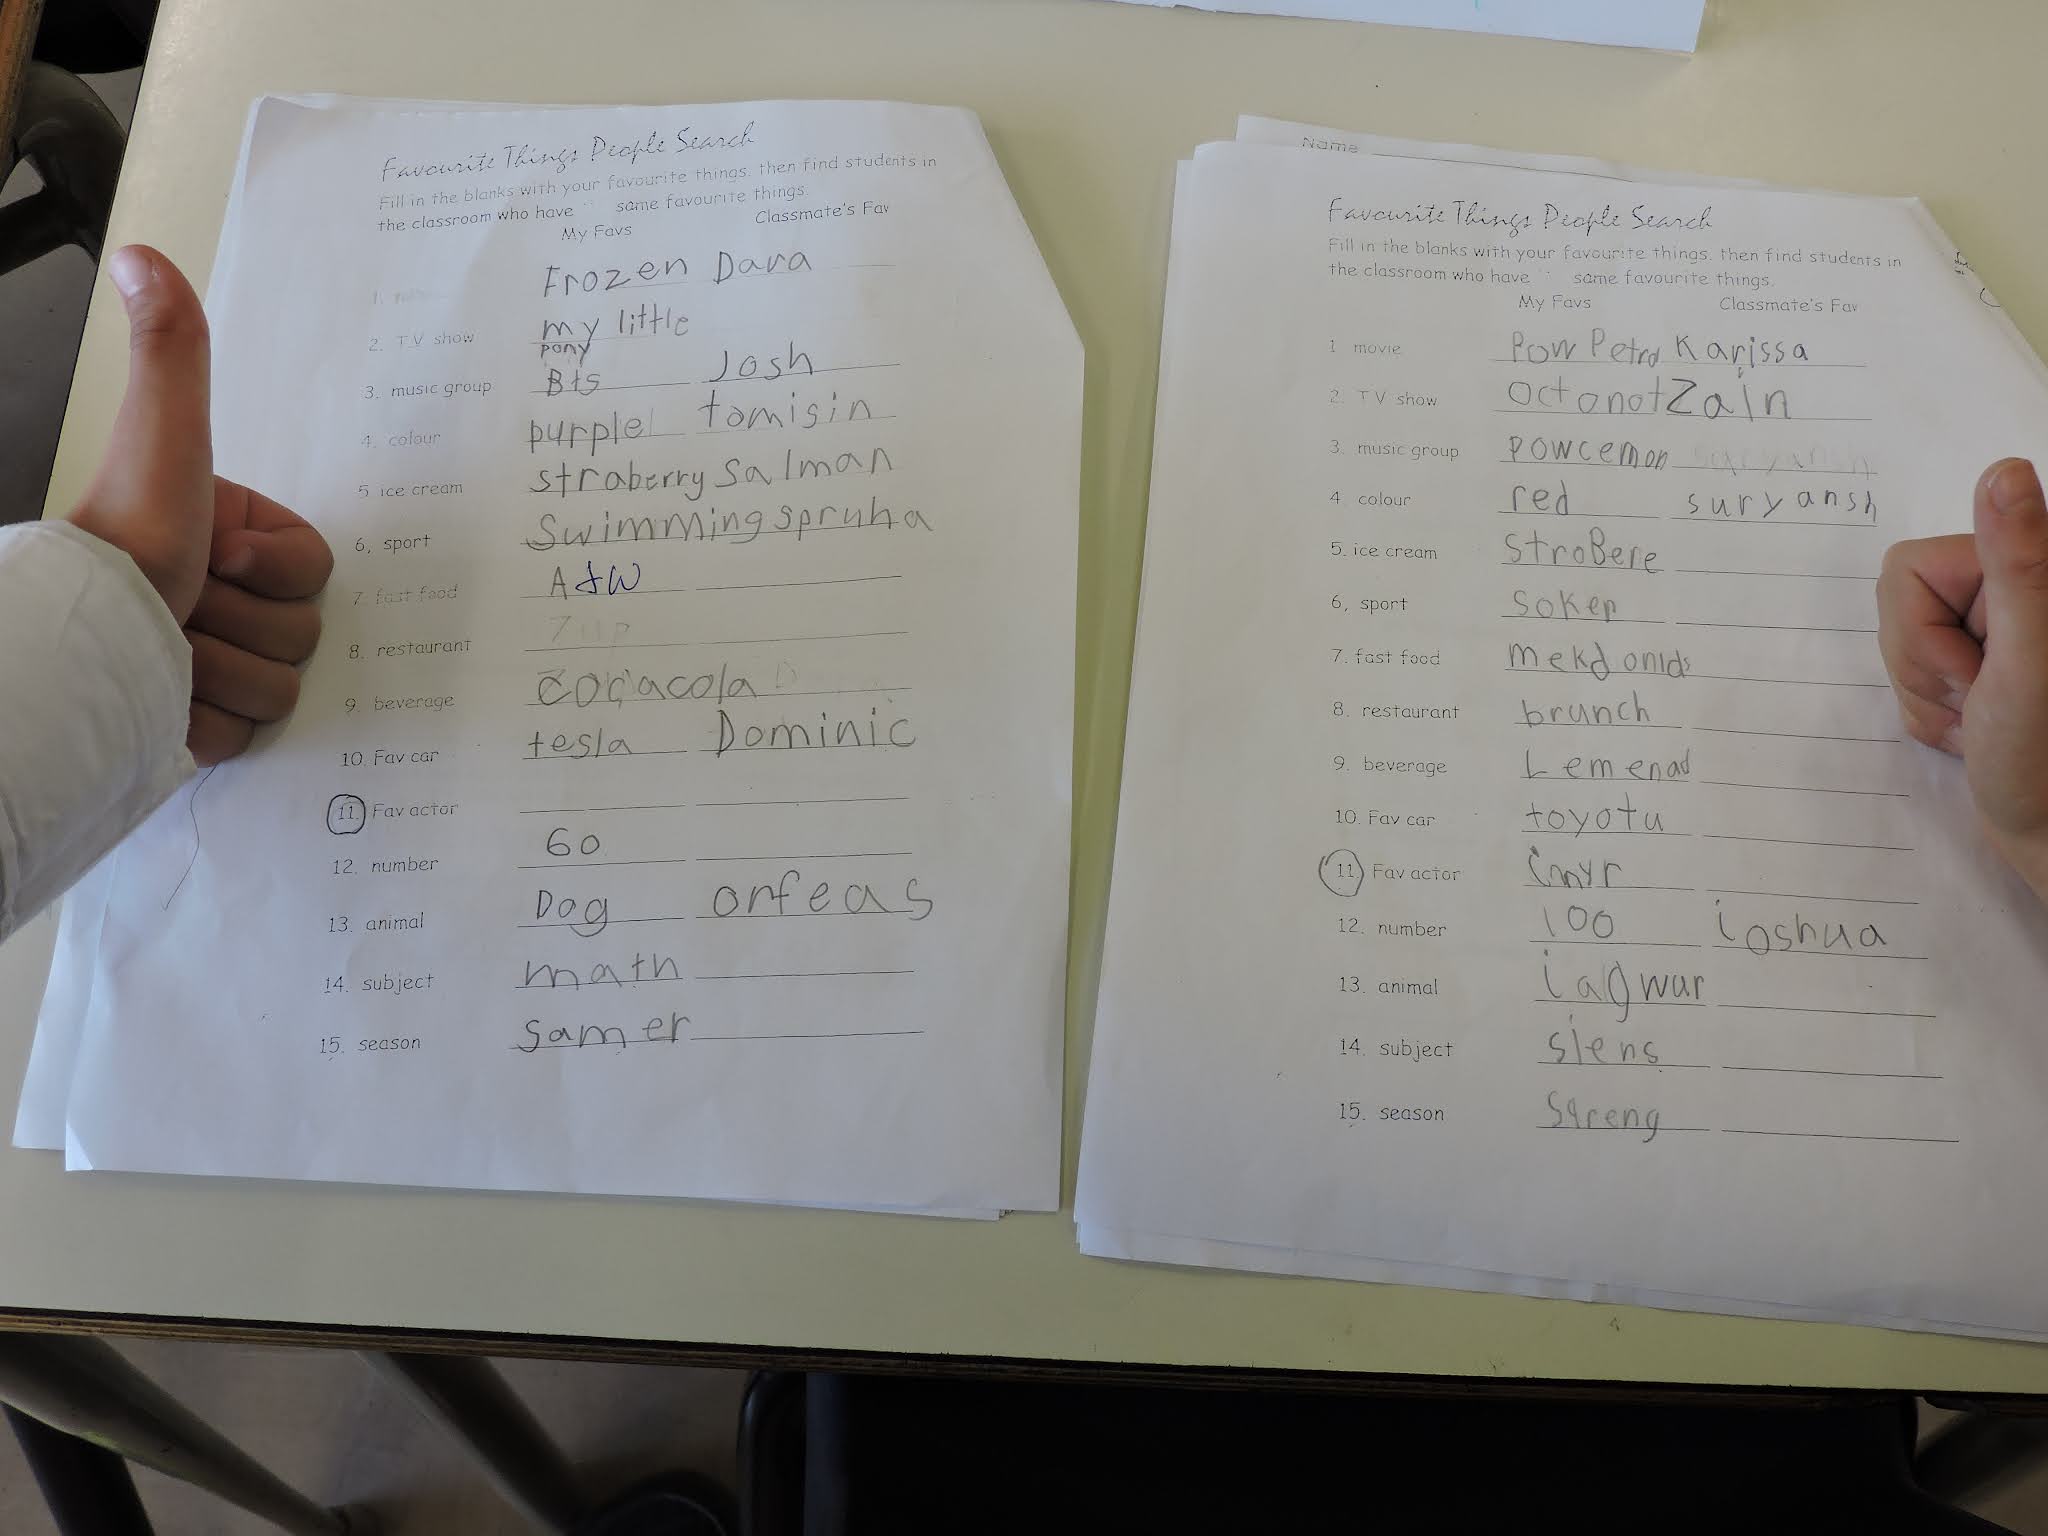 Favourite Things People Search
Fill in the blanks with your favourite things. then find students in
the classroom who have same favourite things.
My Favs Classmate's Fav
1. Frozen Dara
2. TV show my little
pony
3. music group Bts Josh
4. colour purple tomisin
5 ice cream straberry Salman
6, sport Swimming spruha
7. fast food A&W
8. restaurant 7up
9. beverage cocacola
10. Fav car tesla Dominic
11. Fav actor
12. number 60
13. animal Dog orfeas
14. subject math
15. season Samer
Name
Favourite Things People Search
Fill in the blanks with your favourite things. then find students in
the classroom who have same favourite things.
My Favs Classmate's Fav
1 movie Pow Petrol Karissa
2. TV show octonot Zain
3. music group powcemon suryansh
4. colour red suryansh
5. ice cream stroBere
6, sport soker
7. fast food mekdonlds
8. restaurant brunch
9. beverage Lemenad
10. Fav car toyotu
11 Fav actor
12. number 100 ioshua
13. animal iagwur
14. subject siens
15. season Spreng